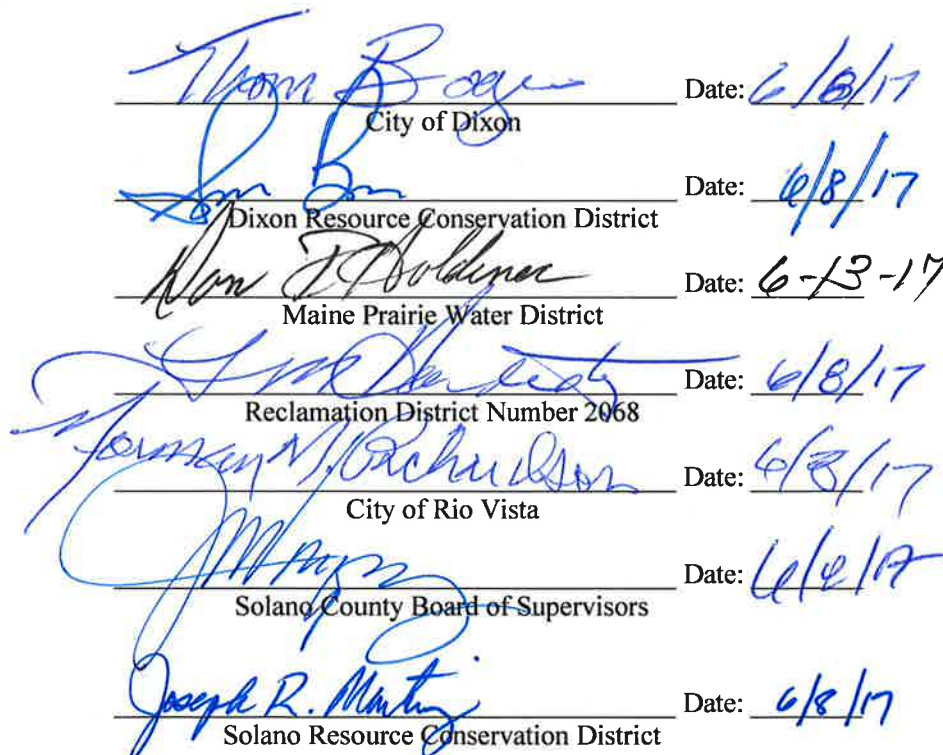 Thom Bogue Date: 6/8/17
City of Dixon
Date: 6/8/17
Dixon Resource Conservation District
Don Holdener Date: 6-13-17
Maine Prairie Water District
Date: 6/8/17
Reclamation District Number 2068
Norman M. Richardson Date: 6/8/17
City of Rio Vista
Date:
Solano County Board of Supervisors
Joseph R. Martinez Date: 6/8/17
Solano Resource Conservation District